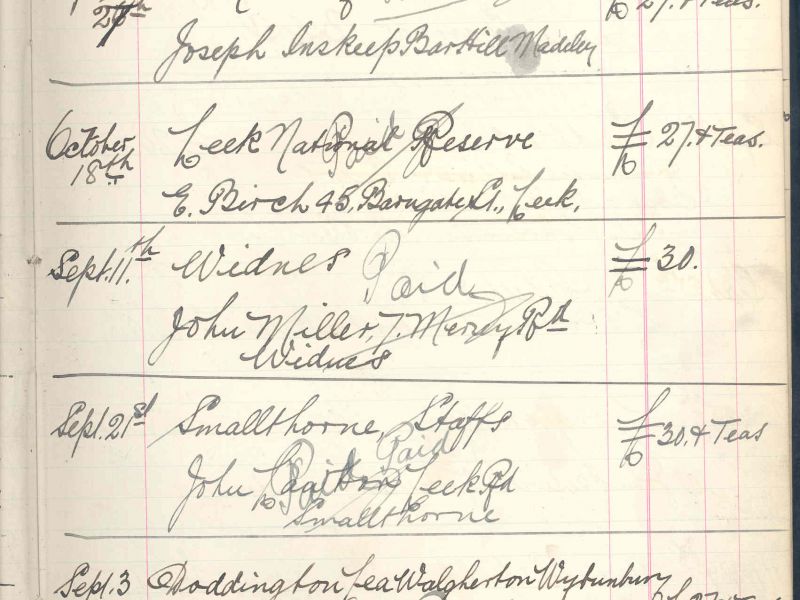 27th
£27. & Teas.
Joseph Inskeep Bar Hill Madeley
October 18th Leek National Reserve £27. & Teas.
Paid
E. Birch 45, Barngate St., Leek.
Sept. 11th Widnes £30.
Paid
John Miller, 7. Mersey Rd
Widnes
Sept. 21st Smallthorne, Staffs £30. & Teas
Paid
Paid
John Leek Rd
Smallthorne
Sept. 3 Doddington Lea Walgherton Wybunbury